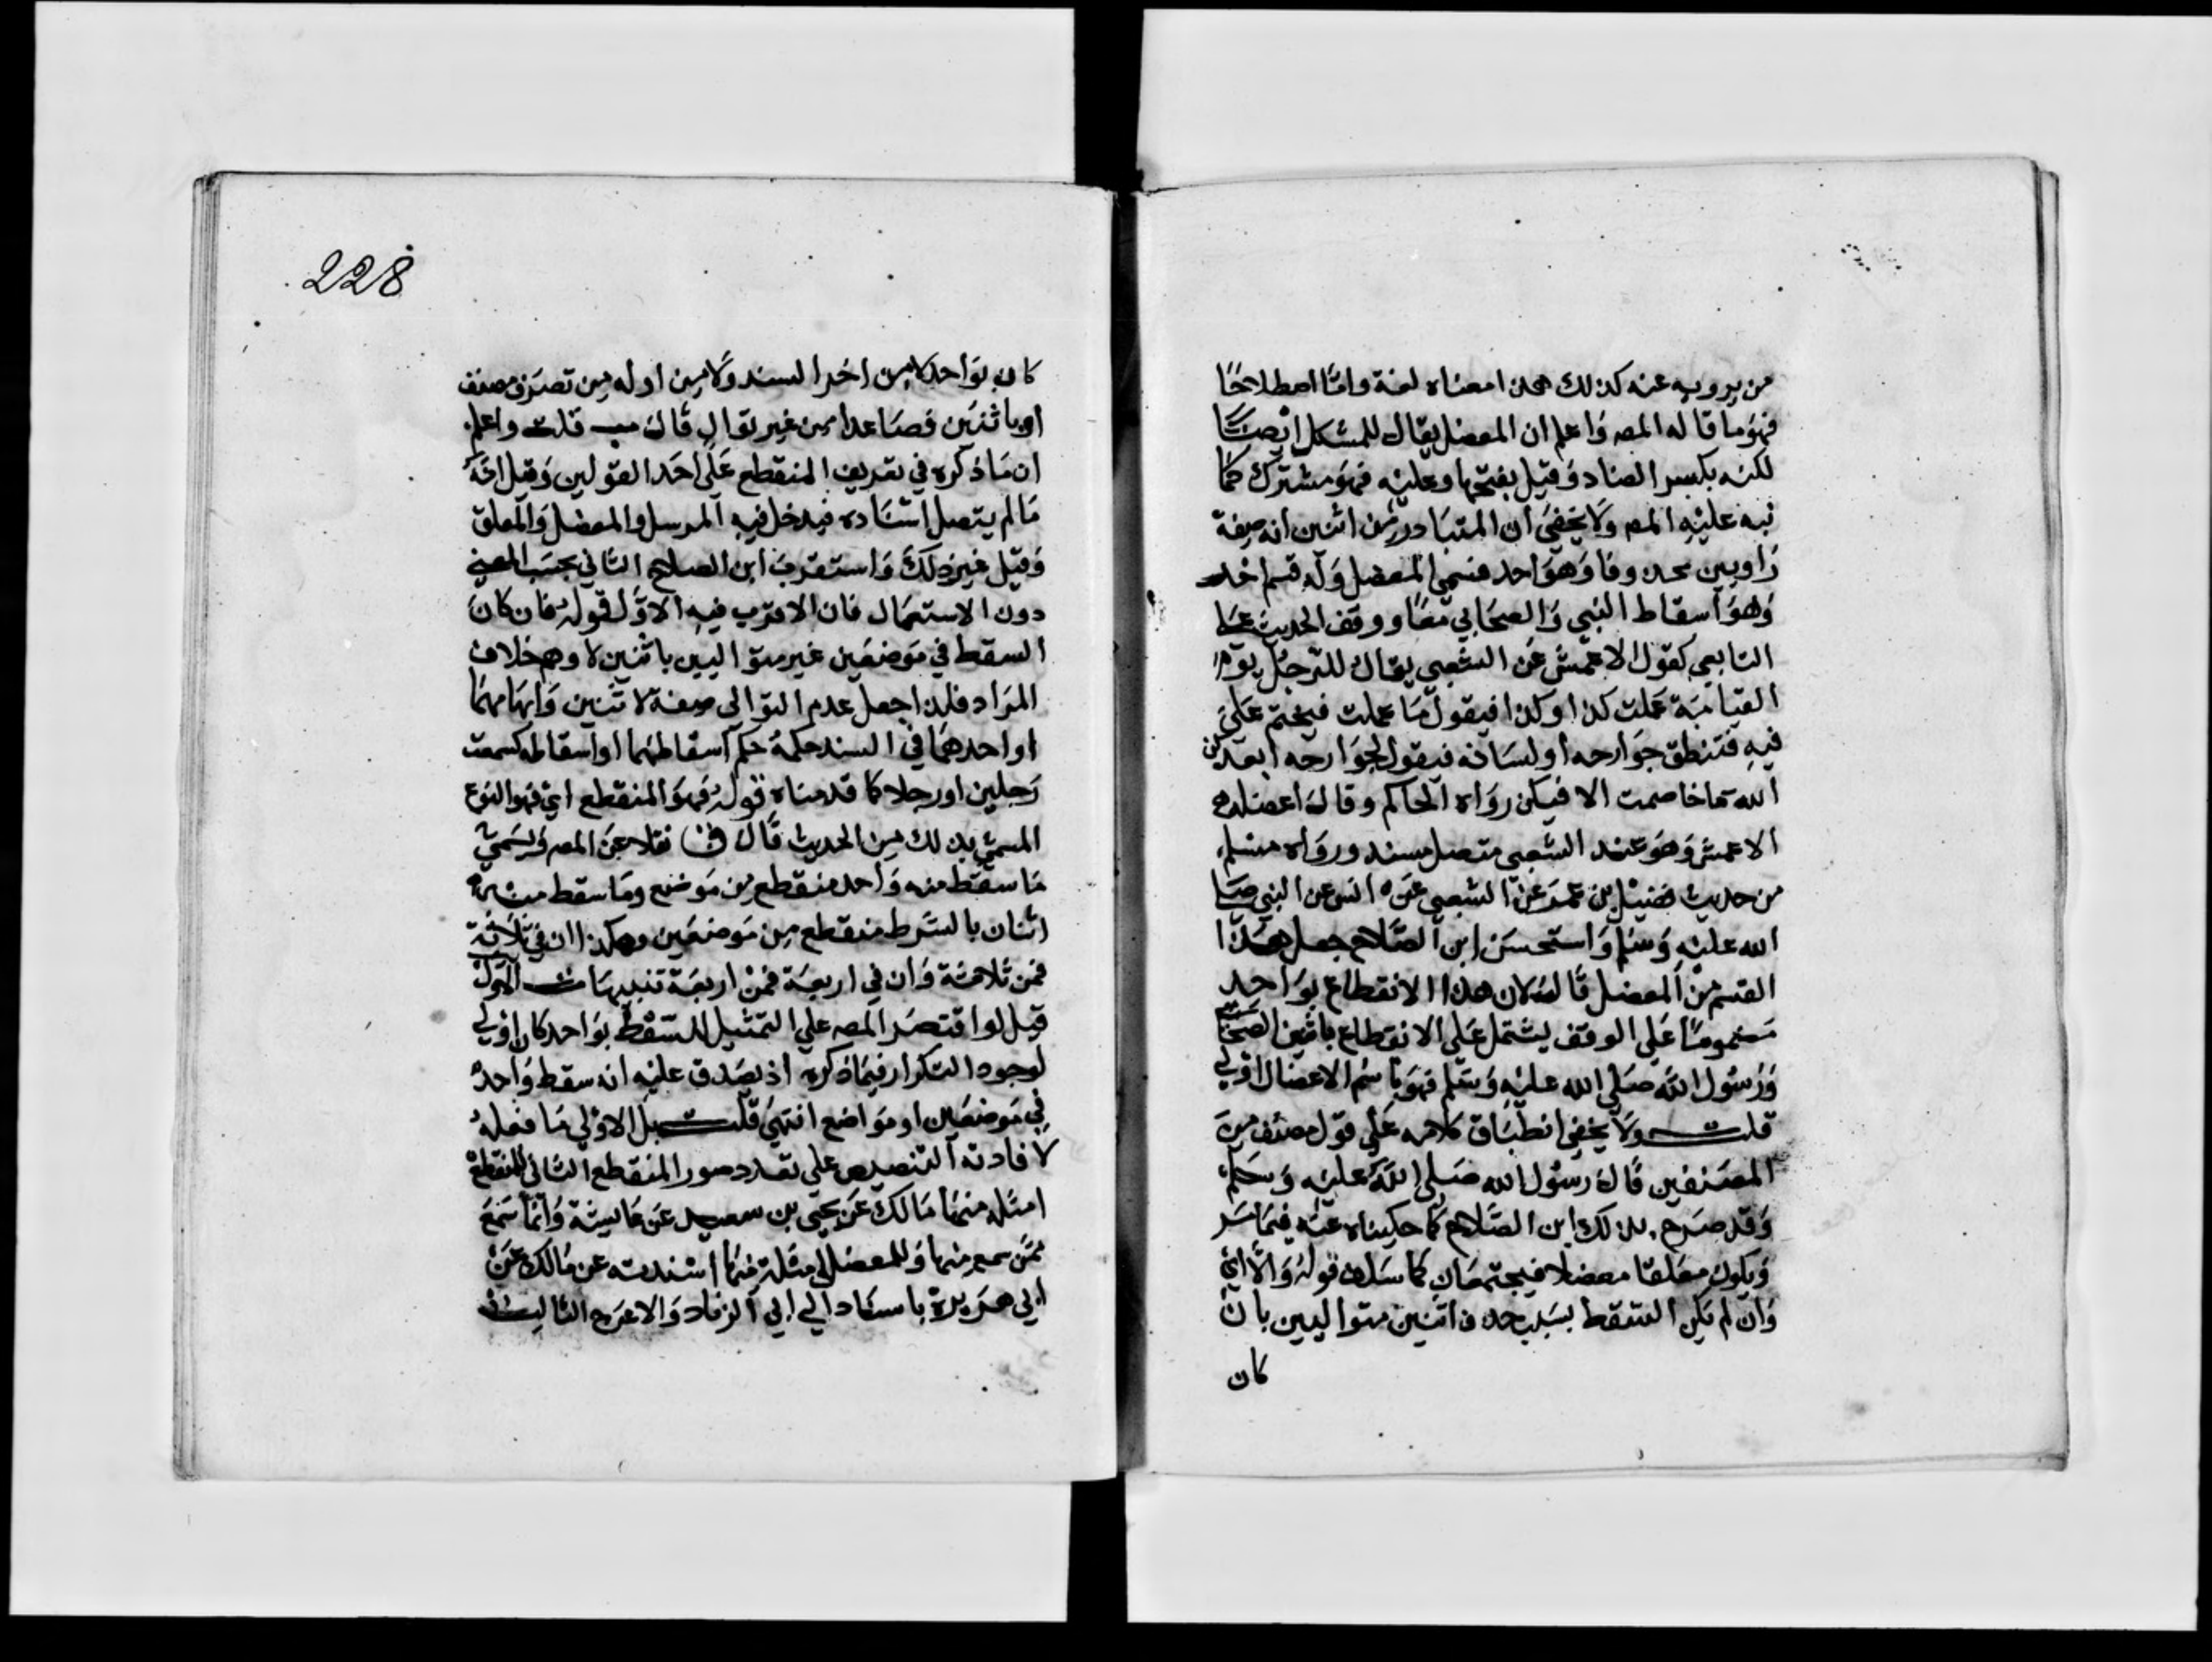 من يرويه عنه كذلك هذا معناه لغة واما اصطلاحا
فهو ما قاله المصه واعلم ان المعضل يقال للمشكل ايضا
لكنه بكسر الضاد وقيل بفتحها وعليه فهو مشترك كما
نبه عليه المصه ولا يخفى ان المتبادر من اثنين انه صفة
راويين محذوفا وهو احد قسمي المعضل وله قسم اخر
وهو اسقاط النبي والصحابي معا ووقف الحديث على
التابعي كقول الاعمش عن الشعبي يقال للرجل يوم
القيامة عملت كذا وكذا فيقول ما عملت فيختم على
فيه فتنطق جوارحه او لسانه فيقول لجوارحه ابعدكن
الله ما خاصمت الا فيكن رواه الحاكم وقال اعضله
الاعمش وهو عند الشعبي متصل مسند ورواه مسلم
من حديث فضيل بن عمرو عن الشعبي عن انس عن النبي صلى
الله عليه وسلم واستحسن ابن الصلاح جعل هذا
القسم من المعضل قال لان هذا الانقطاع بواحد
مضموما على الوقف يشتمل على الانقطاع باثنين الصحابي
ورسول الله صلى الله عليه وسلم فهو باسم الاعضال اولى
قلت ولا يخفى انطباق كلامه على قول مصنف من
المصنفين قال رسول الله صلى الله عليه وسلم
وقد صرح بذلك ابن الصلاح كما حكيناه عنه فيما مر
ويكون معلقا معضلا فيجتمعان كما سلف قوله والا اي
وان لم يكن السقط بسبب حذف اثنين متواليين بان
كان
228
كان بواحد لا من اخر السند ولا من اوله من تصرف مصنف
او باثنين فصاعدا من غير توال قال قلت واعلم
ان ما ذكره في تعريف المنقطع على احد القولين وقيل انه
ما لم يتصل اسناده فيدخل فيه المرسل والمعضل والمعلق
وقيل غير ذلك واستقرب ابن الصلاح الثاني بحسب المعنى
دون الاستعمال فان الاقرب فيه الاول قوله فان كان
السقط في موضعين غير متواليين باثنين لا وهو خلاف
المراد فلذا جعل عدم التوالي صفة لاثنين وابهامهما
او احدهما في السند حكمه حكم اسقاطهما او اسقاطه كسمعت
رجلين او رجلا كما قدمناه قوله فهو المنقطع اي فهو النوع
المسمى بذلك من الحديث قال نقلا عن المصه ويسمى
ما سقط منه واحد منقطع من موضع وما سقط منه
اثنان بالشرط منقطع من موضعين وهكذا ان في ثلاثة
فمن ثلاثة وان في اربعة فمن اربعة تنبيهات الاول
قيل لو اقتصر المصه على التمثيل للسقط بواحد كان اولى
لوجود التكرار فيما ذكره اذ يصدق عليه انه سقط واحد
في موضعين او مواضع انتهى قلت بل الاولى ما فعله
لافادته التنصيص على تعدد صور المنقطع الثاني للمنقطع
امثلة منها مالك عن يحيى بن سعيد عن عايشة وانما سمع
ممن سمع منها وللمعضل امثلة منها اسندته عن مالك عن
ابي هريرة باسناد الى ابي الزناد والاعرج الثالث